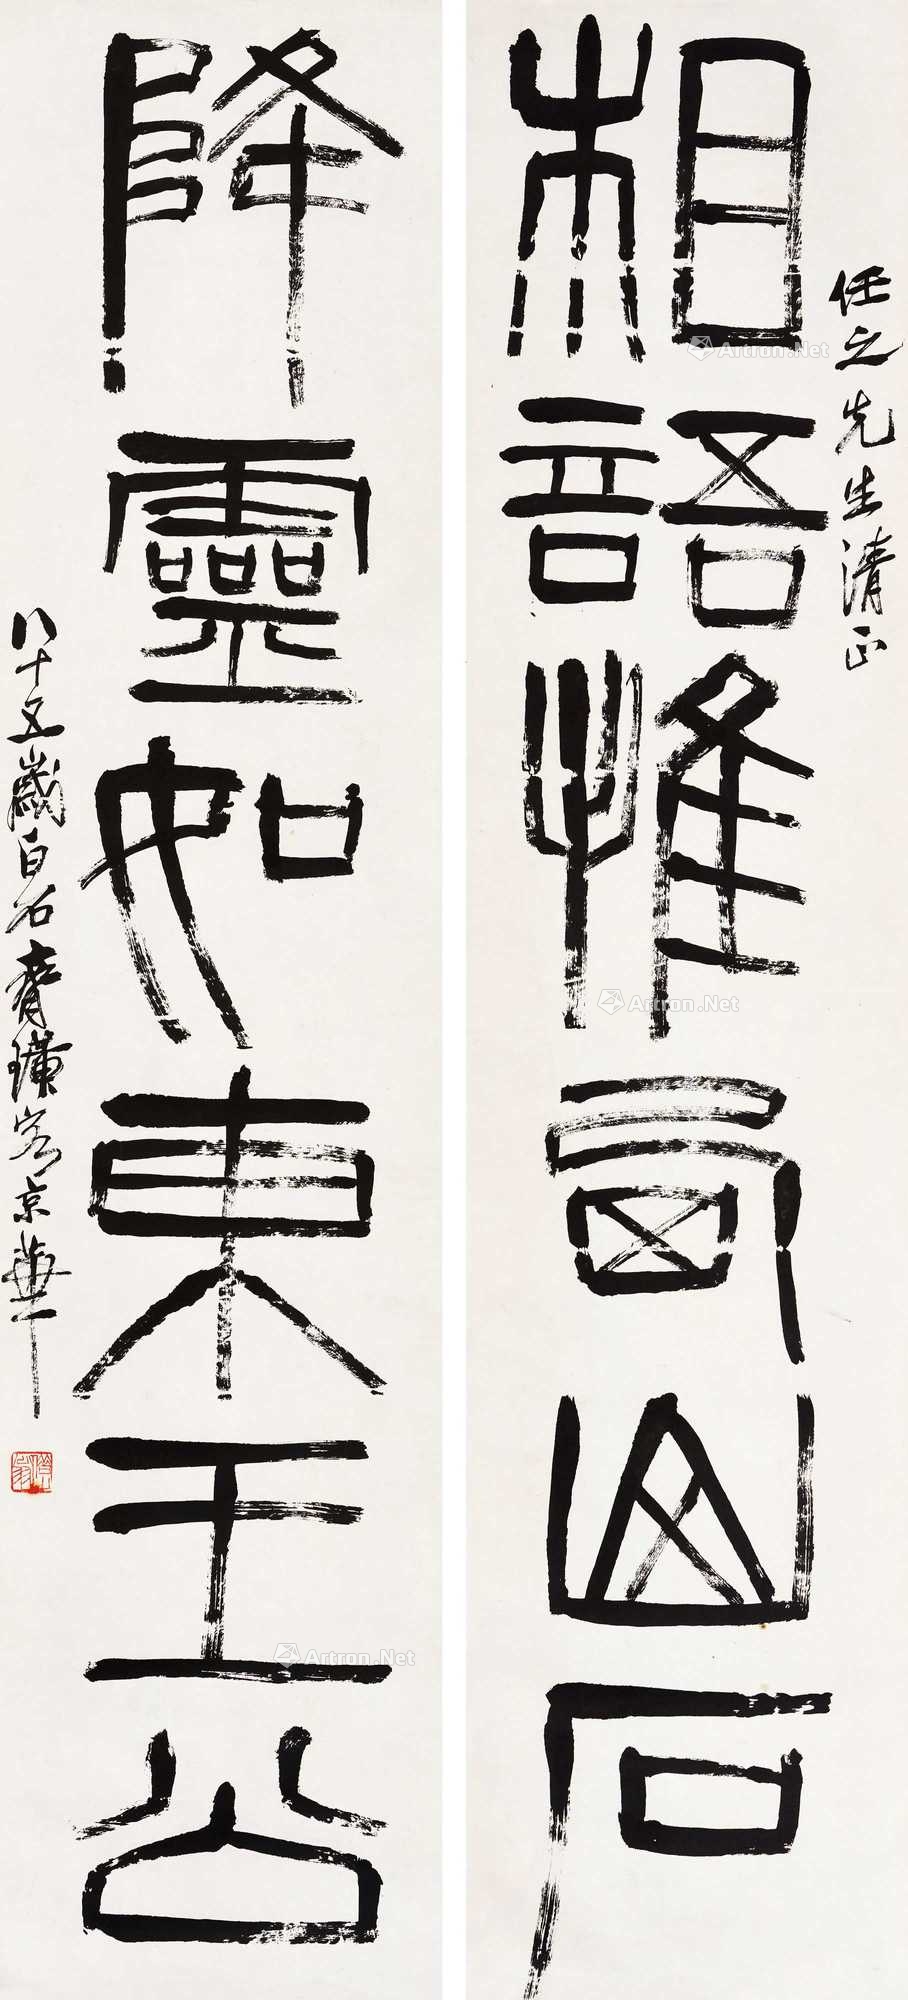 相語惟有山石
任之先生清正
降靈如東王公
八十五歲白石齊璜客京華
Artron.Net
Artron.Net
Artron.Net